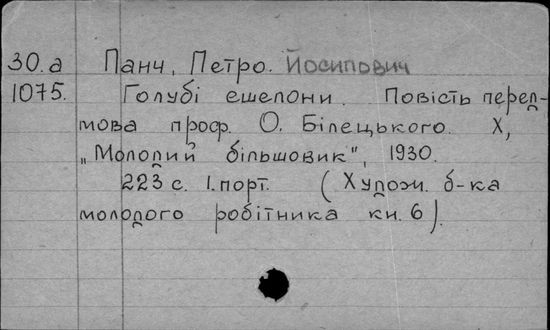 30.а Панч, Петро. Йосипович
1075. Голубі ешелони. Повість перед-
мова проф. О. Білецького. Х,
„Молодий більшовик", 1930.
223 с. 1. порт. (Худож. б-ка
молодого робітника кн. 6).